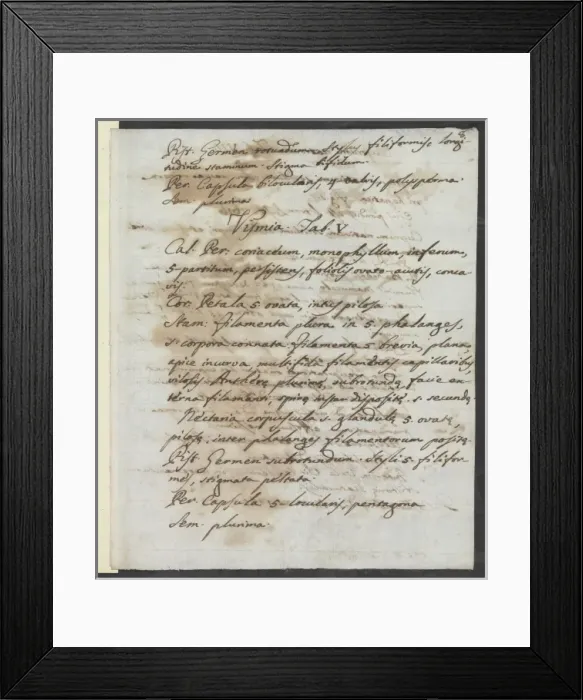 Pist. Germen rotundum stylus filiformis longi
tudine staminum. Stigma bifidum.
Per. Capsula bilocularis, 4 valvis, polysperma.
Sem. plurima
Vismia. Tab. V
Cal. Per. coriaceum, monophyllum, inferum,
5-partitum, persistens, foliolis ovato-acutis, conca
vis.
Cor. Petala 5 ovata, intus pilosa
Stam: filamenta plura in 5 phalanges,
s. corpora connata. filamenta 5 brevia, plana,
apice incurva multifida filamentis capillaribus,
villosis. Antherę plurimę, subrotundę facie ex-
terna filamenti, dispositę. s. secundę.
Nectaria corpuscula s. glandulę 5. ovatę,
pilosę. inter phalanges filamentorum positę.
Pist. Germen subrotundum. Styli 5. filifor
mes, stigmata peltata.
Per. Capsula 5-locularis, pentagona
Sem. plurima.